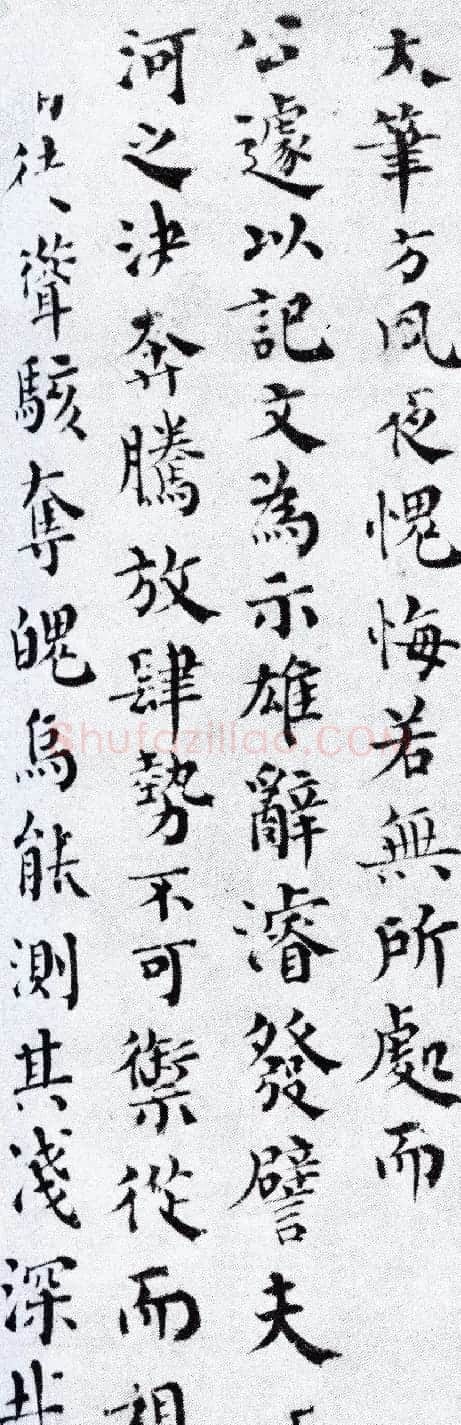 太筆方夙夜愧悔若無所處而
公遽以記文為示雄辭濬發譬夫
河之決奔騰放肆勢不可禦從而
聳駭奪魄烏能測其淺深
Shufaziliao.COM